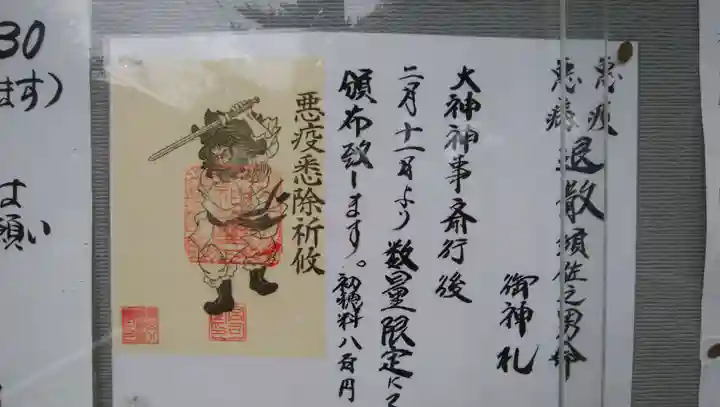 悪疫
悪疼退散
須佐之男命
御神札
大神神事斎行後
二月十一日より数量限定にて
頒布致します。
初穂料八百円
悪疫悉除祈攸
30
ます）
は
願い